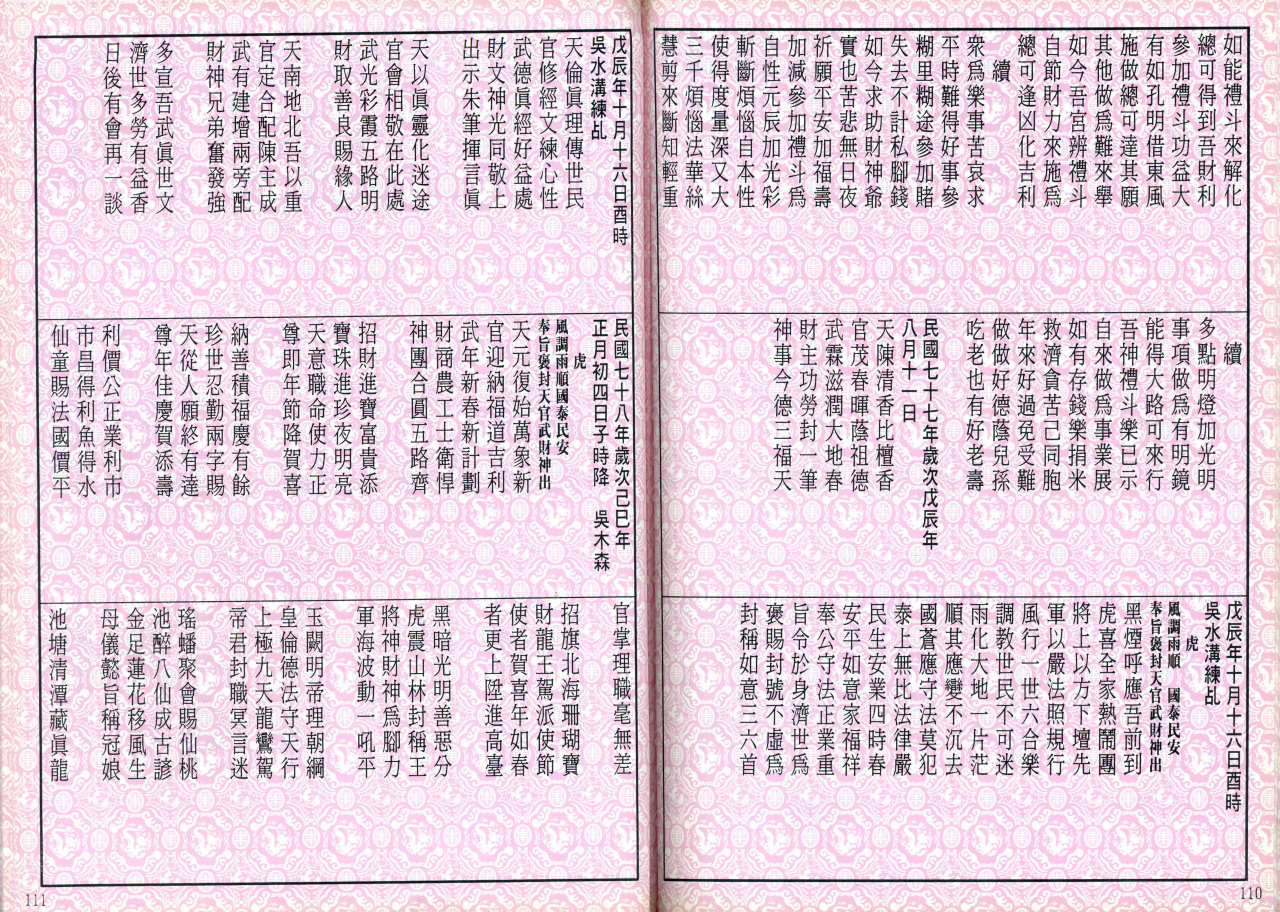 如能禮斗來解化
總可得到吾財利
參加禮斗功益大
有如孔明借東風
施做總可達其願
其他做為難來舉
如今吾宮辨禮斗
自節財力來施為
總可逢凶化吉利
續
衆為樂事苦哀求
平時難得好事參
糊里糊途參加賭
失去不計私腳錢
如今求助財神爺
實也苦悲無日夜
祈願平安加福壽
加減參加禮斗為
自性元辰加光彩
斬斷煩惱自本性
使得度量深又大
三千煩惱法華絲
慧剪來斷知輕重
續
多點明燈加光明
事項做為有明鏡
能得大路可來行
吾神禮斗樂已示
自來做為事業展
如有存錢樂捐米
救濟貪苦己同胞
年來好過免受難
做做好德蔭兒孫
吃老也有好老壽
民國七十七年歲次戊辰年
八月十一日
天陳清香比檀香
官茂春暉蔭祖德
武霖滋潤大地春
財主功勞封一筆
神事今德三福天
戊辰年十月十六日酉時
吳水溝練乩
虎
風調雨順　國泰民安
奉旨褒封天官武財神出
黑煙呼應吾前到
虎喜全家熱鬧團
將上以方下壇先
軍以嚴法照規行
風行一世六合樂
調教世民不可迷
雨化大地一片茫
順其應變不沉去
國蒼應守法莫犯
泰上無比法律嚴
民生安業四時春
安平如意家福祥
奉公守法正業重
旨令於身濟世為
褒賜封號不虛為
封稱如意三六首
戊辰年十月十六日酉時
吳水溝練乩
天倫眞理傳世民
官修經文練心性
武德眞經好益處
財文神光同敬上
出示朱筆揮言眞
天以眞靈化迷途
官會相敬在此處
武光彩霞五路明
財取善良賜緣人
天南地北吾以重
官定合配陳主成
武有建增兩旁配
財神兄弟奮發強
多宣吾武眞世文
濟世多勞有益香
日後有會再一談
民國七十八年歲次己巳年
正月初四日子時降　吳木森
虎
風調雨順國泰民安
奉旨褒封天官武財神出
天元復始萬象新
官迎納福道吉利
武年新春新計劃
財商農工士衛悍
神團合圓五路齊
招財進寶富貴添
寶珠進珍夜明亮
天意職命使力正
尊即年節降賀喜
納善積福慶有餘
珍世忍勤兩字賜
天從人願終有達
尊年佳慶賀添壽
利價公正業利市
市昌得利魚得水
仙童賜法國價平
官掌理職毫無差
招旗北海珊瑚寶
財龍王駕派使節
使者賀喜年如春
者更上陞進高臺
黑暗光明善惡分
虎震山林封稱王
將神財神為腳力
軍海波動一吼平
玉闕明帝理朝綱
皇倫德法守天行
上極九天龍鸞駕
帝君封職冥言迷
瑤蟠聚會賜仙桃
池醉八仙成古諺
金足蓮花移風生
母儀懿旨稱冠娘
池塘清潭藏眞龍
110
111